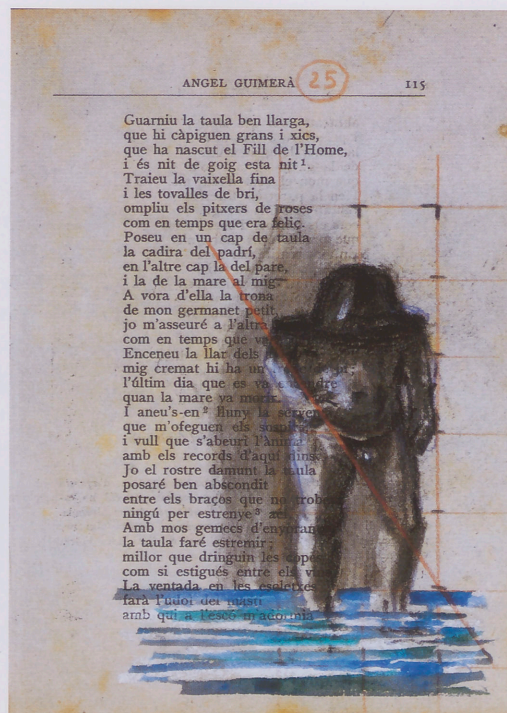 ANGEL GUIMERÀ 25 115
Guarniu la taula ben llarga,
que hi càpiguen grans i xics,
que ha nascut el Fill de l'Home,
i és nit de goig esta nit¹.
Traieu la vaixella fina
i les tovalles de bri,
ompliu els pitxers de roses
com en temps que era feliç.
Poseu en un cap de taula
la cadira del padrí,
en l'altre cap la del pare,
i la de la mare al mig.
A vora d'ella la trona
de mon germanet petit,
jo m'asseuré a l'altra
com en temps que
Enceneu la llar dels
mig cremat hi ha un
l'últim dia que es va encendre
quan la mare va morir.
I aneu's-en² lluny la
que m'ofeguen els
i vull que s'abeuri l'ànima
amb els records d'aquí dins.
Jo el rostre damunt la taula
posaré ben abscondit
entre els braços que no
ningú per estrenye³
Amb mos gemecs d'enyorança
la taula faré estremir;
millor que dringuin les copes
com si estigués entre els
La ventada en les escletxes
farà l'udol del mastí
amb qui a l'escó m'adormia